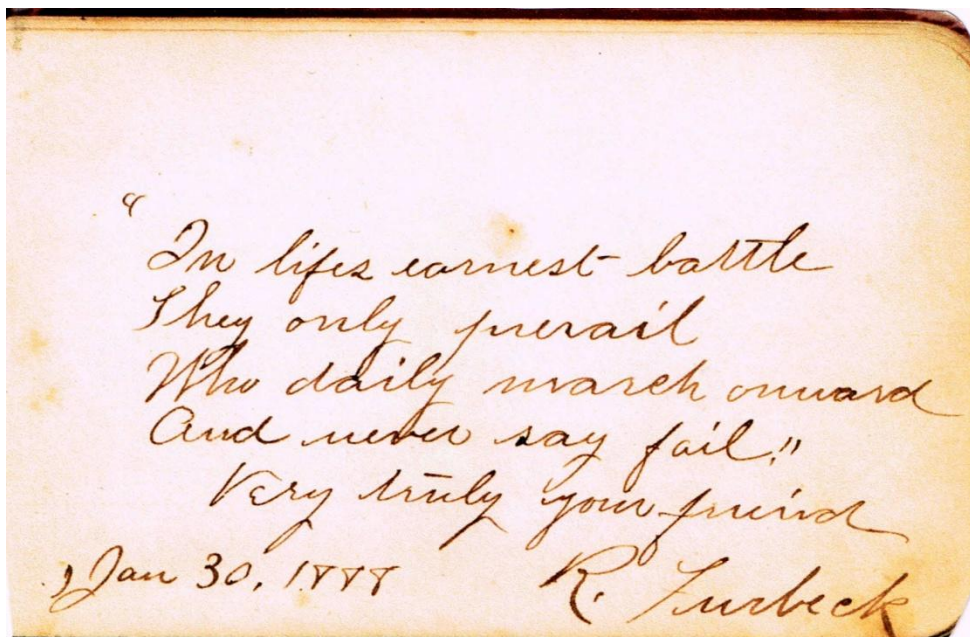 "
In lifes earnest battle
They only prevail
Who daily march onward
And never say fail."
Very truly your friend
Jan 30, 1888 R. Furbeck